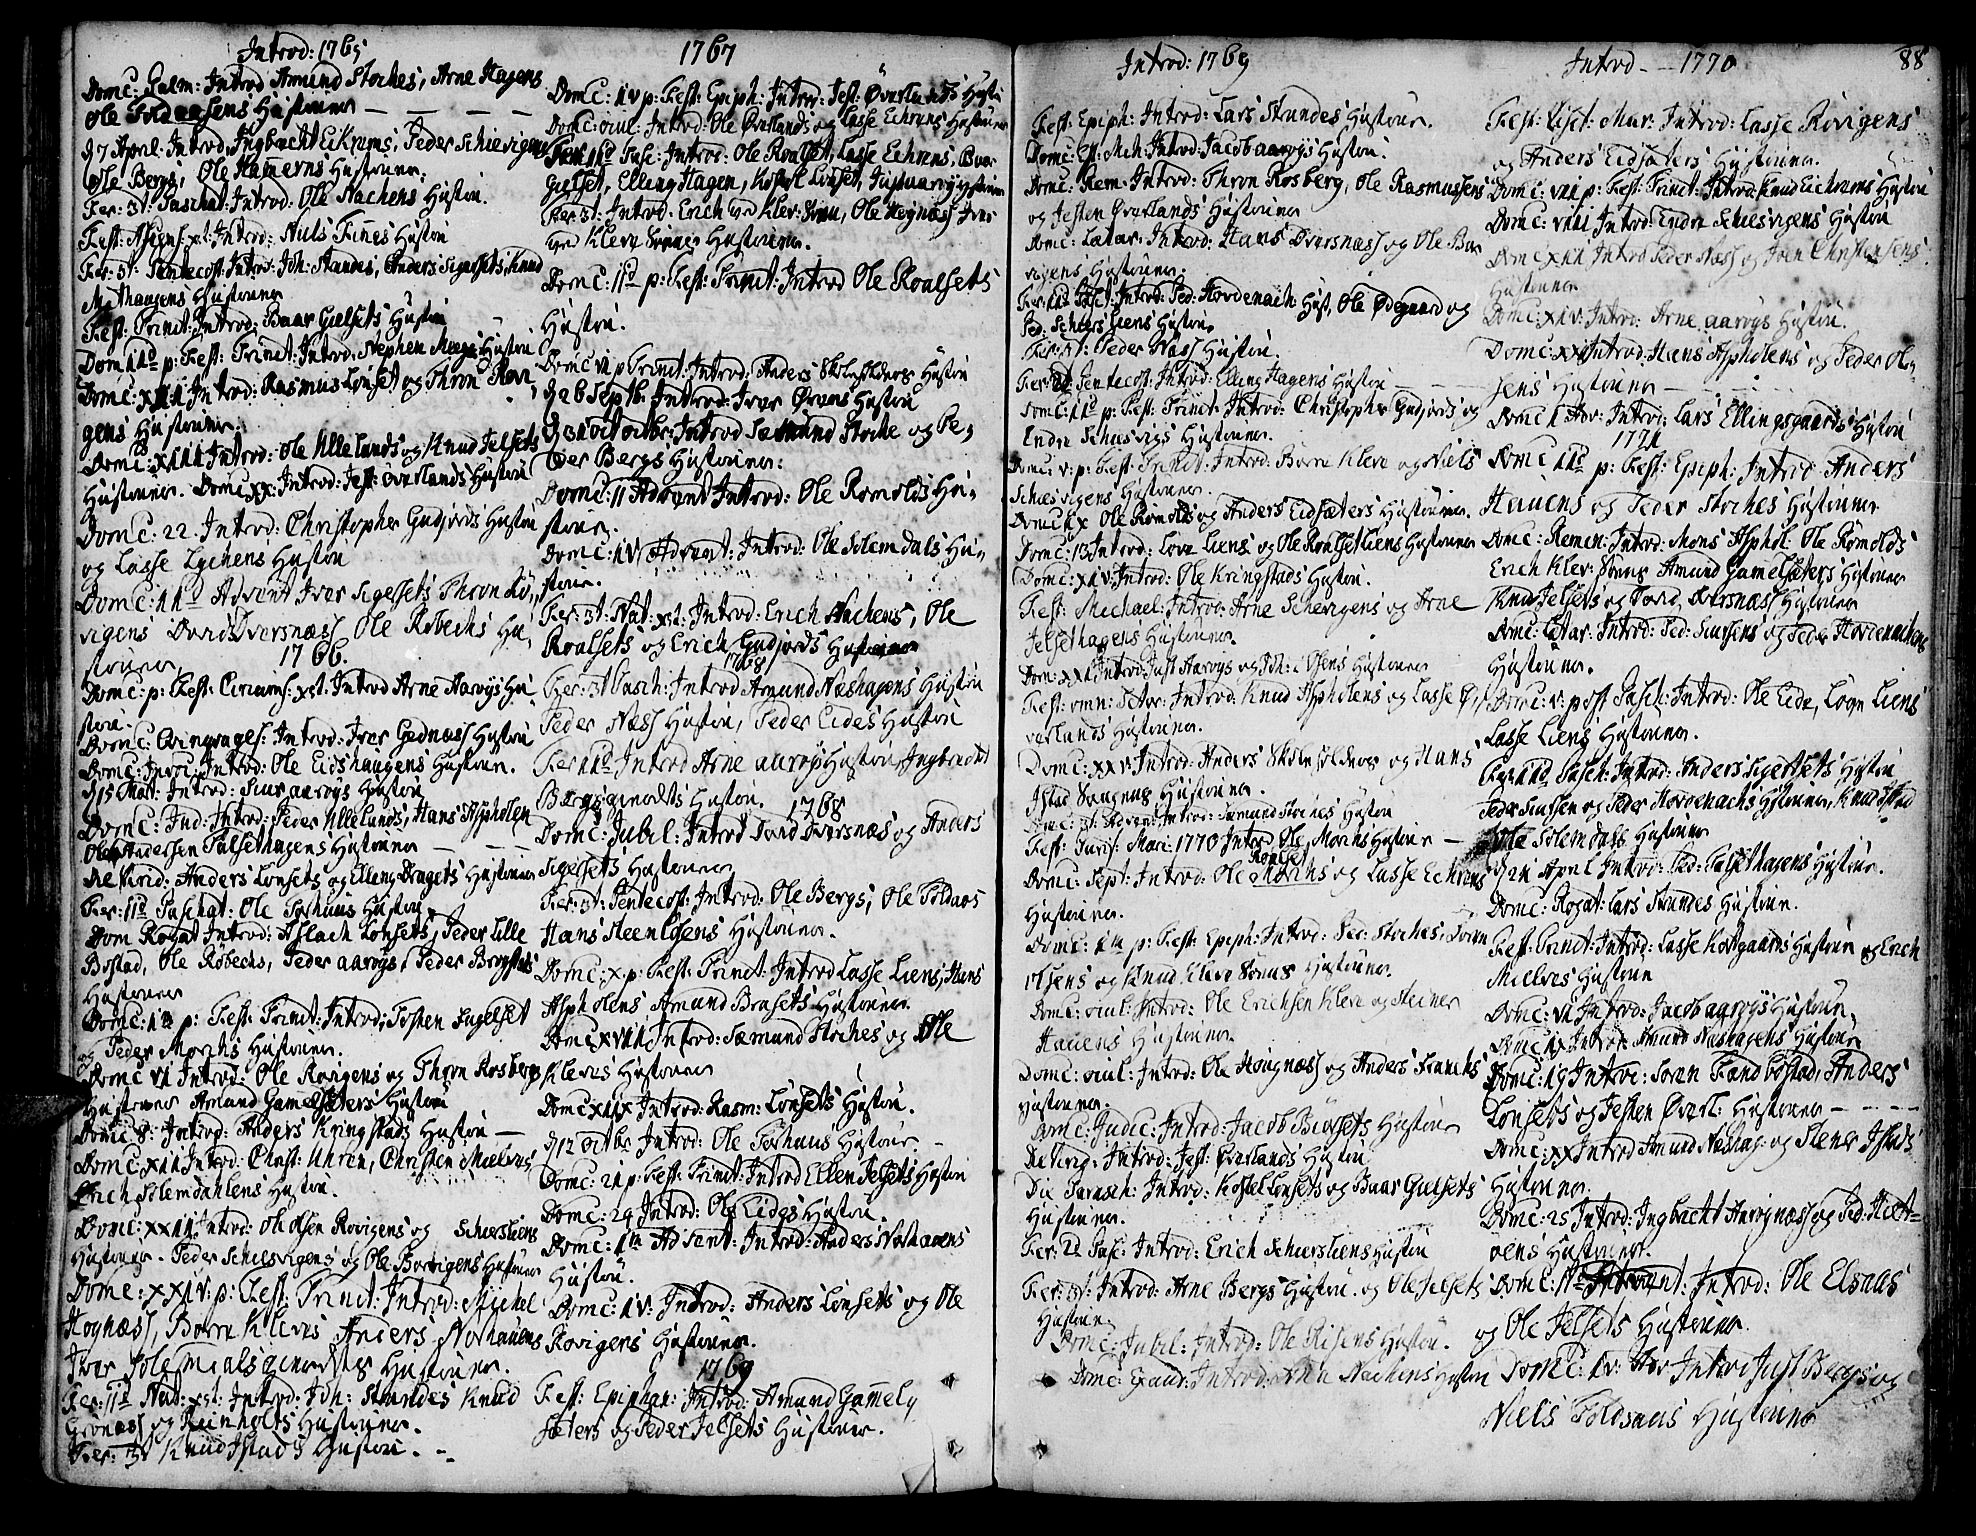 Introd: 1765
Domc: Palm: Introd Amund Stoches, Arne Hagens
Ole Foldnæsens Hustouer
d 7 April: Introd Ingbracht Eikrems, Peder Schievigens
Ole Bergs, Ole Hamerns Hustouner.
Fer: 3t: Paschat: Introd: Ole Nachens Hustou.
Fest: Ascens: xt: Introd: Niels Fines Hustou
Fer: 3t: Pentecost: Introd: Joh: Standes, Anders Sigersets, Knud
Mæhaugens Hustouner
Fest: Trinit: Introd: Baar Gielsets Hustou
Dom 11d p: Fest: Trinit: Introd: Stephen Hustou
Domc: XIII Introd: Rasmus Lønset og Thron Røvi-
gens Hustouner:
Domc: XVIII Introd: Ole Ullelunds og Knud Jelsets
Hustouner. Domc XX: Introd: Jest: Øverlands Hustou
Domc: 22. Introd: Christopher Gudjords Hustou
og Lasse Lyckens Hustou
Domc: 11d Advent Iver Sigersets Thron Rø-
vigens David Dversnæss Ole Røbechs Hu-
stouner.
1766.
Domc: p: Fest: Circums: xst: Introd Arne Aarøys Hu-
stou.
Domc: Qvinquages: Introd: Iver Gudnæss Hustou
Domc: Invoc: Introd: Ole Eidshaugens Hustou.
d 15 Mart: Introd: Siur aarøys Hustou
Domc: Jud: Introd: Peder Ullelunds, Hans Aspholen
Ole Andersen Talsethagens Hustouner
Die Virid: Anders Lønsets og Elling Dragets Hustouner
Fer: 11d Paschat: Ole Torhuus Hustou
Dom Rogat Introd: Aslach Lønsets, Peder Lille
Bostad, Ole Røbechs, Peder aarøys, Peder Bergstads
Hustouner
Domc: 1ma p: Fest: Trinit: Introd: Tosten Jugelset
og Peder Moechs Hustouner.
Domc VI Introd: Ole Røvigens og Thron Rosbergs
Hustouner Amund Gamelsæters Hustou
Domc 8: Introd: Anders Kringstads Hustou
Domc XIII Introd: Christ: Uhren, Christen Mielves
Erich Solemdahlens Hustou.
Domc: XXIII Introd: Ole Olsen Røvigens og Scheersliens
Hustouner. Peder Schiesvigens og Ole Borvigens Hustouer
Domc: XXIV: p: Fest: Trinit: Introd: Michel
Hognæss, Børre Kleves Anders Norhauens
Iver Solesmals Hustouner.
Fer: 11d Nat: xst: Introd: Joh: Standes Knud
Grønæss og Reinholts Hustouner.
Fer: 3t Knud Istad's Hustou.
1767
Domc: IV p: Fest: Epiph: Introd: Jest: Øverlands Hustou
Domc: oculi: Introd: Ole Øverlands og Lasse Echrens Hustouner
Fer: 11d Pasc: Introd: Ole Roalset, Lasse Echrens, Baar
Gielset, Elling Hagen, Kostel Lønset, Just aarøy
Fer: 3t: Introd: Erich ved Klev: Øren, Ole Høgnæs Iver
ved Kleve Hustouner.
Domc: 11d p: Fest: Trinit: Introd Ole Roalsets
Hustou.
Domc VI p Trinit: Introd: Anders Skoleholders Hustou
d 26 Septb. Introd: Iver Ørens Hustou
d 31 Octobr: Introd Sæmund Stoche og Pe-
der Bergs Hustouner:
Domc: 11 Advent Introd: Ole Romolds Hu-
stou.
Domc: IV Advent: Introd: Ole Solemdals Hu-
stou.
Fer: 3t: Nat: xst: Introd: Erich Nachens, Ole
Roalsets og Erich Gudjords Hustouner
1768
Fer: 3t Pasch: Introd Amund Næshagens Hustou
Peder Næss Hustou, Peder Eides Hustou
Fer 11d Introd Arne aarøys Hustou, Ingbracht
Bergs Hustou. 1768
Domc: Jubil: Introd David Dversnæs og Anders
Sigersets Hustouner
Fer: 3t: Pentecost: Introd: Ole Bergs, Ole Foldnæs
Hans Hustouner.
Domc: X p: Fest: Trinit: Introd Lasse Liens, Hans
Aspholens Amund Brasets Hustouner.
Domc XVIII Introd: Sæmund Stoches og Ole
Kleves Hustouner
Domc XIX Introd: Rasm: Lønsets Hustou.
d 12 Octbr Introd: Ole Torhuus Hustou
Domc: 21 p: Fest: Trinit: Introd Ellen Jelsets Hustou
Domc: 24 Introd: Ole Eides Hustou.
Domc: 1ma Advent: Introd: Anders Norhauens
Hustou.
Domc: IV: Introd: Anders Lønsets og Ole
Røvigens Hustouner.
1769
Fest: Epiphan: Introd: Amund Gamely
sæters og Peder Jelsets Hustouner.
Introd: 1769
Fest: Epiph: Introd: Lars Strandes Hustouer.
Domc: Introd: Jacob aarøys Hustou.
Domc: Rem: Introd: Thron Rosberg, Ole Rasmussens
og Jesten Øverlands Hustouner
Domc: Lætar: Introd: Hans Dversnæss og Ole Bor-
vigens Hustouner.
Fer: 11d Pasc: Introd: Ped: Hordenach: Hust, Ole Ødegaard og
Ped: Scheersliens Hustou.
Fer: 3t: Peder Næss Hustou.
Fer: 3t: Pentecost: Introd: Elling Hagens Hustou
Domc: 11 p: Fest: Trinit: Introd: Christopher Gudjords og
Endre Schusvigs Hustouner.
Domc: V: p: Fest: Trinit: Introd: Børre Kleve og Niels
Schiesvigens Hustouner.
Domc IX Ole Romolds og Anders Eidsæters Hustouner.
Domc: 13 Introd: Love Liens og Ole Roalset Liens Hustouner
Domc: XIV: Introd: Ole Kringstads Hustou.
Fest: Michael: Introd: Arne Schevigens og Arne
Jelsethagens Hustouner.
Domc: XXI Introd: Just Aarøys og Joh: Olsens Hustouner
Fest: omn: Sctor: Introd: Knud Aspholens og Lasse Ø-
verlands Hustouner.
Domc: XXV: Introd: Anders Skoleholders og Hans
Istad Hustouner.
Domc: 3t Advent: Introd: Sæmund Stoches Hustou
Fest: Purif: Mari: 1770 Introd Ole Moechs Hustouer
Domc: Sept: Introd: Ole Roalset og Lasse Echrens
Hustouner.
Domc: 1ma p: Fest: Epiph: Introd: Per: Stoches, Joren
Olsens og Knud Kleve Hustouner.
Domc: oculi: Introd: Ole Erichsen Kleve og Steiner
Hauens Hustouner.
Domc: oculi: Introd: Ole Høgnæss og Anders
Hustouner.
Domc: Judic: Introd: Jacob Biørsets Hustouer
Die Virid: Introd: Jest: Øverlands Hustou.
Die Parasch: Introd: Kostel Lønsets og Baar Gielsets
Hustouner.
Fer: 2d Pasc: Introd: Erich Scheersliens Hustou
Fer: 3t: Introd: Arne Bergs Hustou. og Ole Jelsets
Hustouner
Domc: Jubil: Introd: Ole Risens Hustou.
Domc: Exaud: Introd: Nachens Hustou
Introd 1770 88
Fest: Visit: Mar: Introd: Lasse Røvigens
og Anders Eidsæters Hustouner.
Domc: VIII p: Fest: Trinit: Introd: Knud Eichrems Hustou
Domc: VIIII Introd: Endre Schiesvigens Hustou
Domc XIII Introd Peder Næss og Iven Christensens
Hustouner
Domc: XIV: Introd: Arne aarøys Hustou.
Domc: XX Introd: Hans Aspholens og Peder Ole-
sens Hustouner
Domc 1 Adv: Introd: Lars Ellingsgaards Hustou
1771
Domc 11d p: Fest: Epiph: Introd Anders
Hauens og Peder Stoches Hustouner
Domc: Remin: Introd: Mons Asphol Ole Rømolds
Erich Klev: Amund Gamelsæters Hustouner
Knud Jelsets og David Dversnæss Hustouner
Domc: Lætar: Introd: Ped: Siursens og Peder Hordenachens
Hustouner.
Domc: V: post Pasch: Introd: Ole Eide, Løgn Liens
Lasse Liens Hustouner.
Fer: 11d Pasch: Introd: Anders Sigersets Hustou
Peder Siursen og Peder Hordenachs Hustouner, Knud Istad
Ole Solemdals Hustouner
d 21 April Introd: Ped: Talsethagens Hustouer.
Domc: Rogat: Lars Strandes Hustouer.
Fest: Trinit: Introd: Lasse Kostgaards Hustouer og Erich
Mielves Hustouer
Domc: VI Introd: Jacob aarøys Hustouer.
Domc: IX Introd: Amund Næshagens Hustouer
Domc: 19 Introd: Soren Bostad, Anders
Lønsets og Jesten Øverl: Hustouner
Domc: XX Introd Amund Næshag: og Stener Istads
Hustouner.
Domc: 25 Introd: Ingbracht Høgnæss og Ped: Hiet-
øens Hustouner.
Domc: 11d Advent: Introd: Ole Elsaas
og Ole Jelsets Hustouner.
Domc: IV: Adv Introd Just Bergs og
Niels Foldsnæs Hustouner